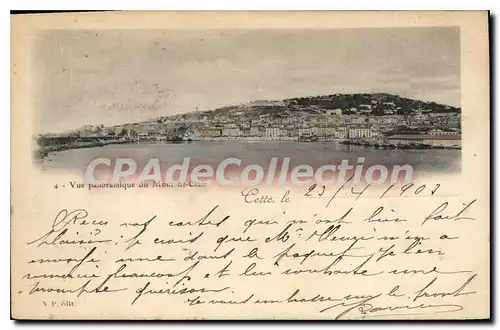 CPArama.com
4 - Vue panoramique du Mont St-Clair
Cette, le 23/4 1903
Reçu vos cartes qui m'ont bien fait
plaisir. Je crois que Mr Henri m'en a
envoyé une datée de la
remercie beaucoup et lui souhaite une
prompte guérison. Je vous embrasse
N P. édit.